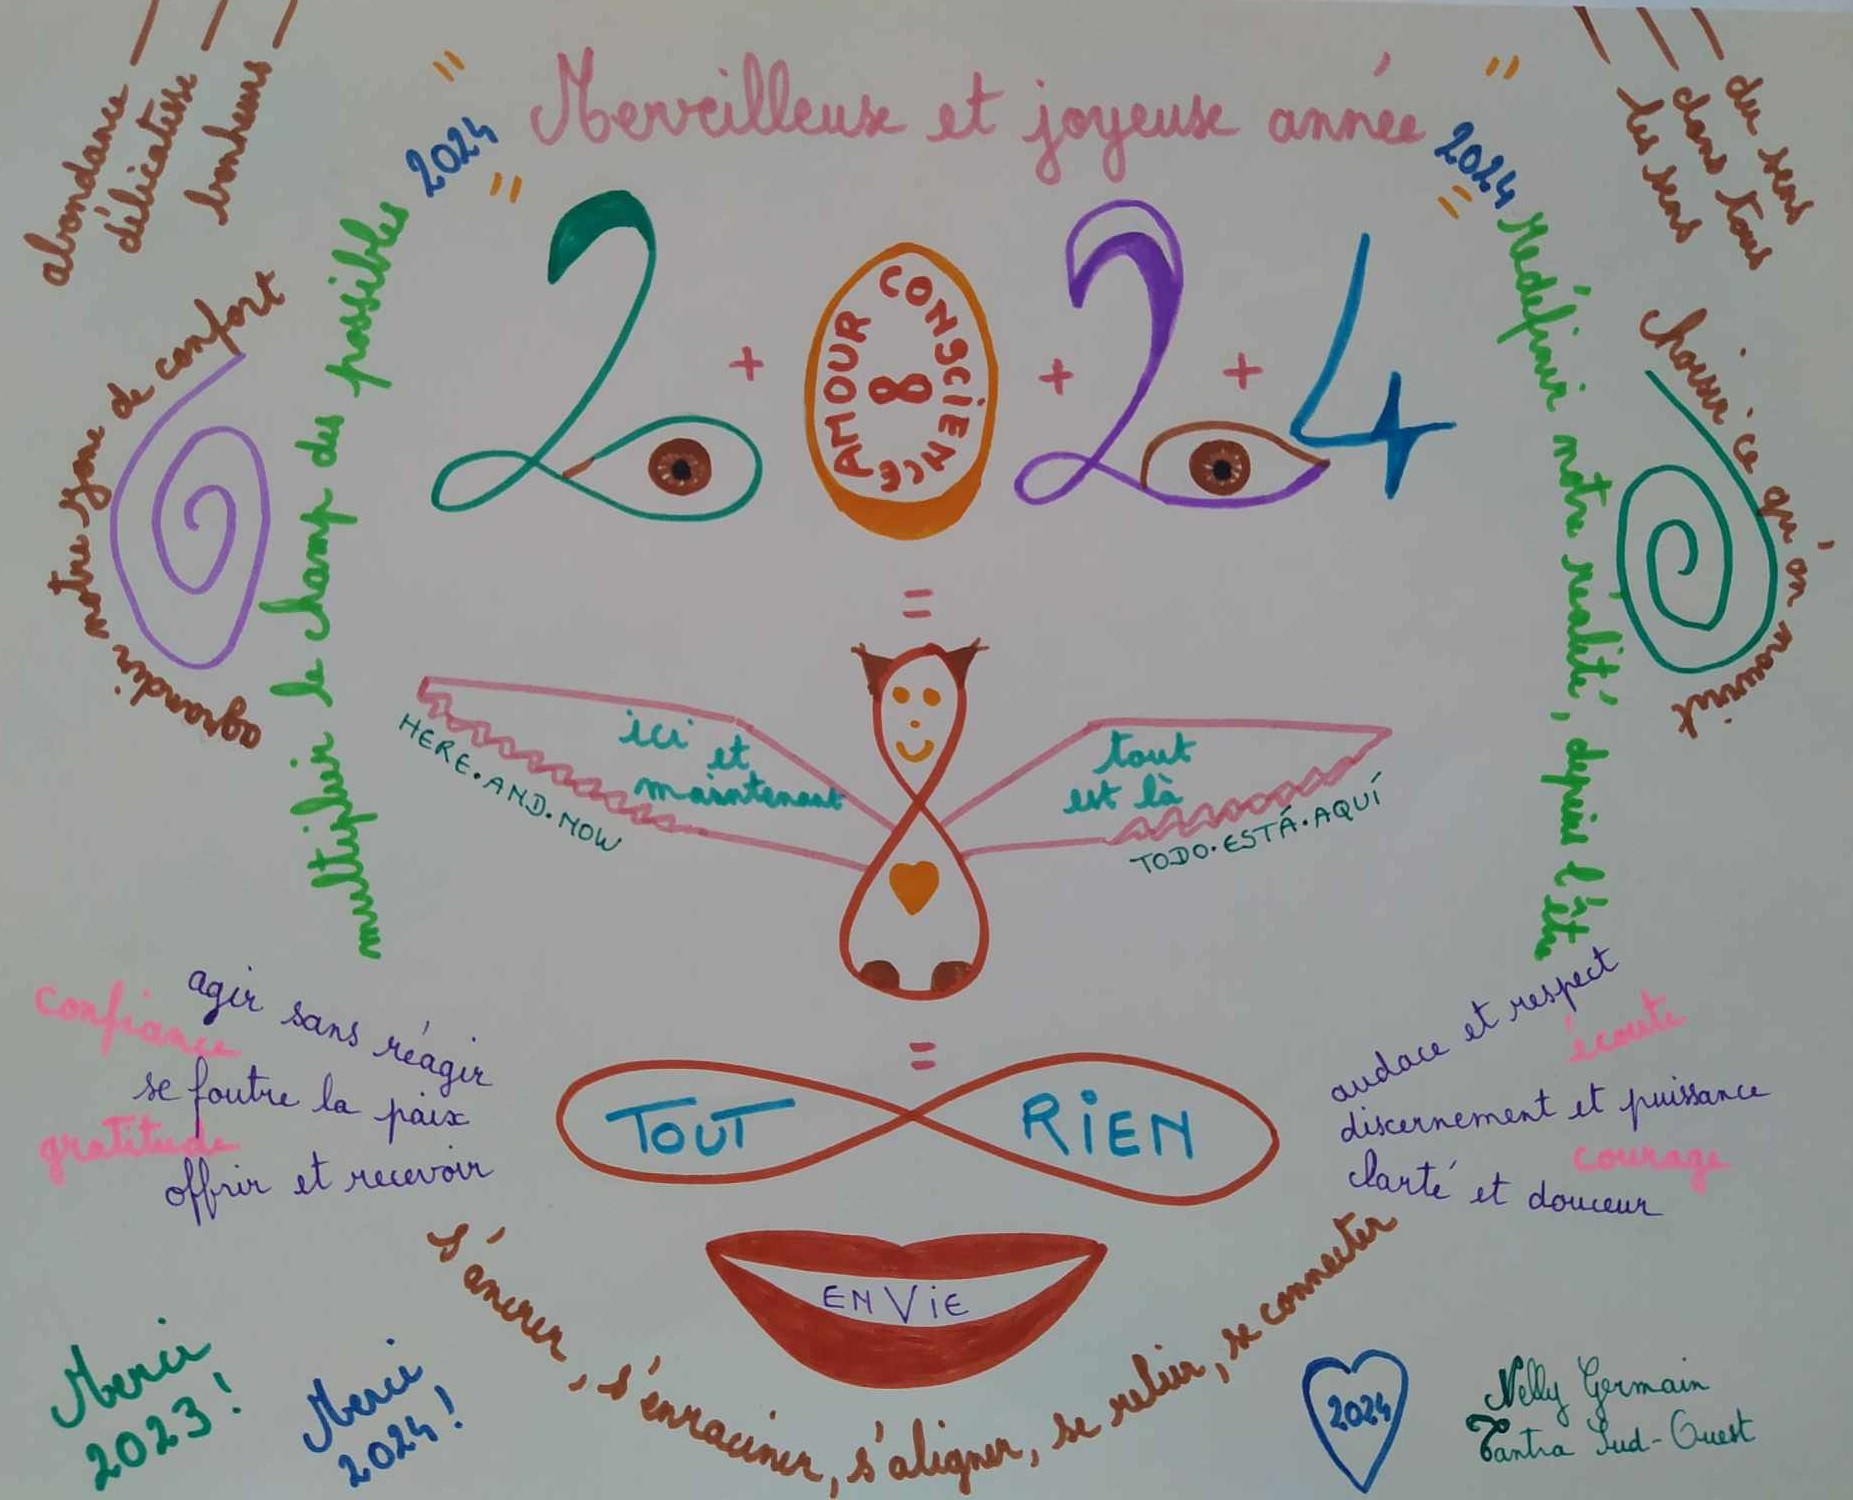 abondance
délicatesse
bonheurs
2024
Merveilleuse et joyeuse année
2024
du sens
dans tous
les sens
agrandir notre zone de confort
multiplier le champ des possibles
2 + 0 + 2 + 4
AMOUR
8
CONSCIENCE
Redéfinir notre réalité, depuis l'être
choisir ce qu'on nourrit
=
ici et
maintenant
HERE.AND.NOW
tout
est là
TODO.ESTÁ.AQUÍ
=
TOUT RiEN
confiance
agir sans réagir
se foutre la paix
gratitude
offrir et recevoir
audace et respect
écoute
discernement et puissance
courage
clarté et douceur
EN ViE
s'ancrer, s'enraciner, s'aligner, se relier, se connecter
Merci
2023!
Merci
2024!
2024
Nelly Germain
Tantra Sud-Ouest